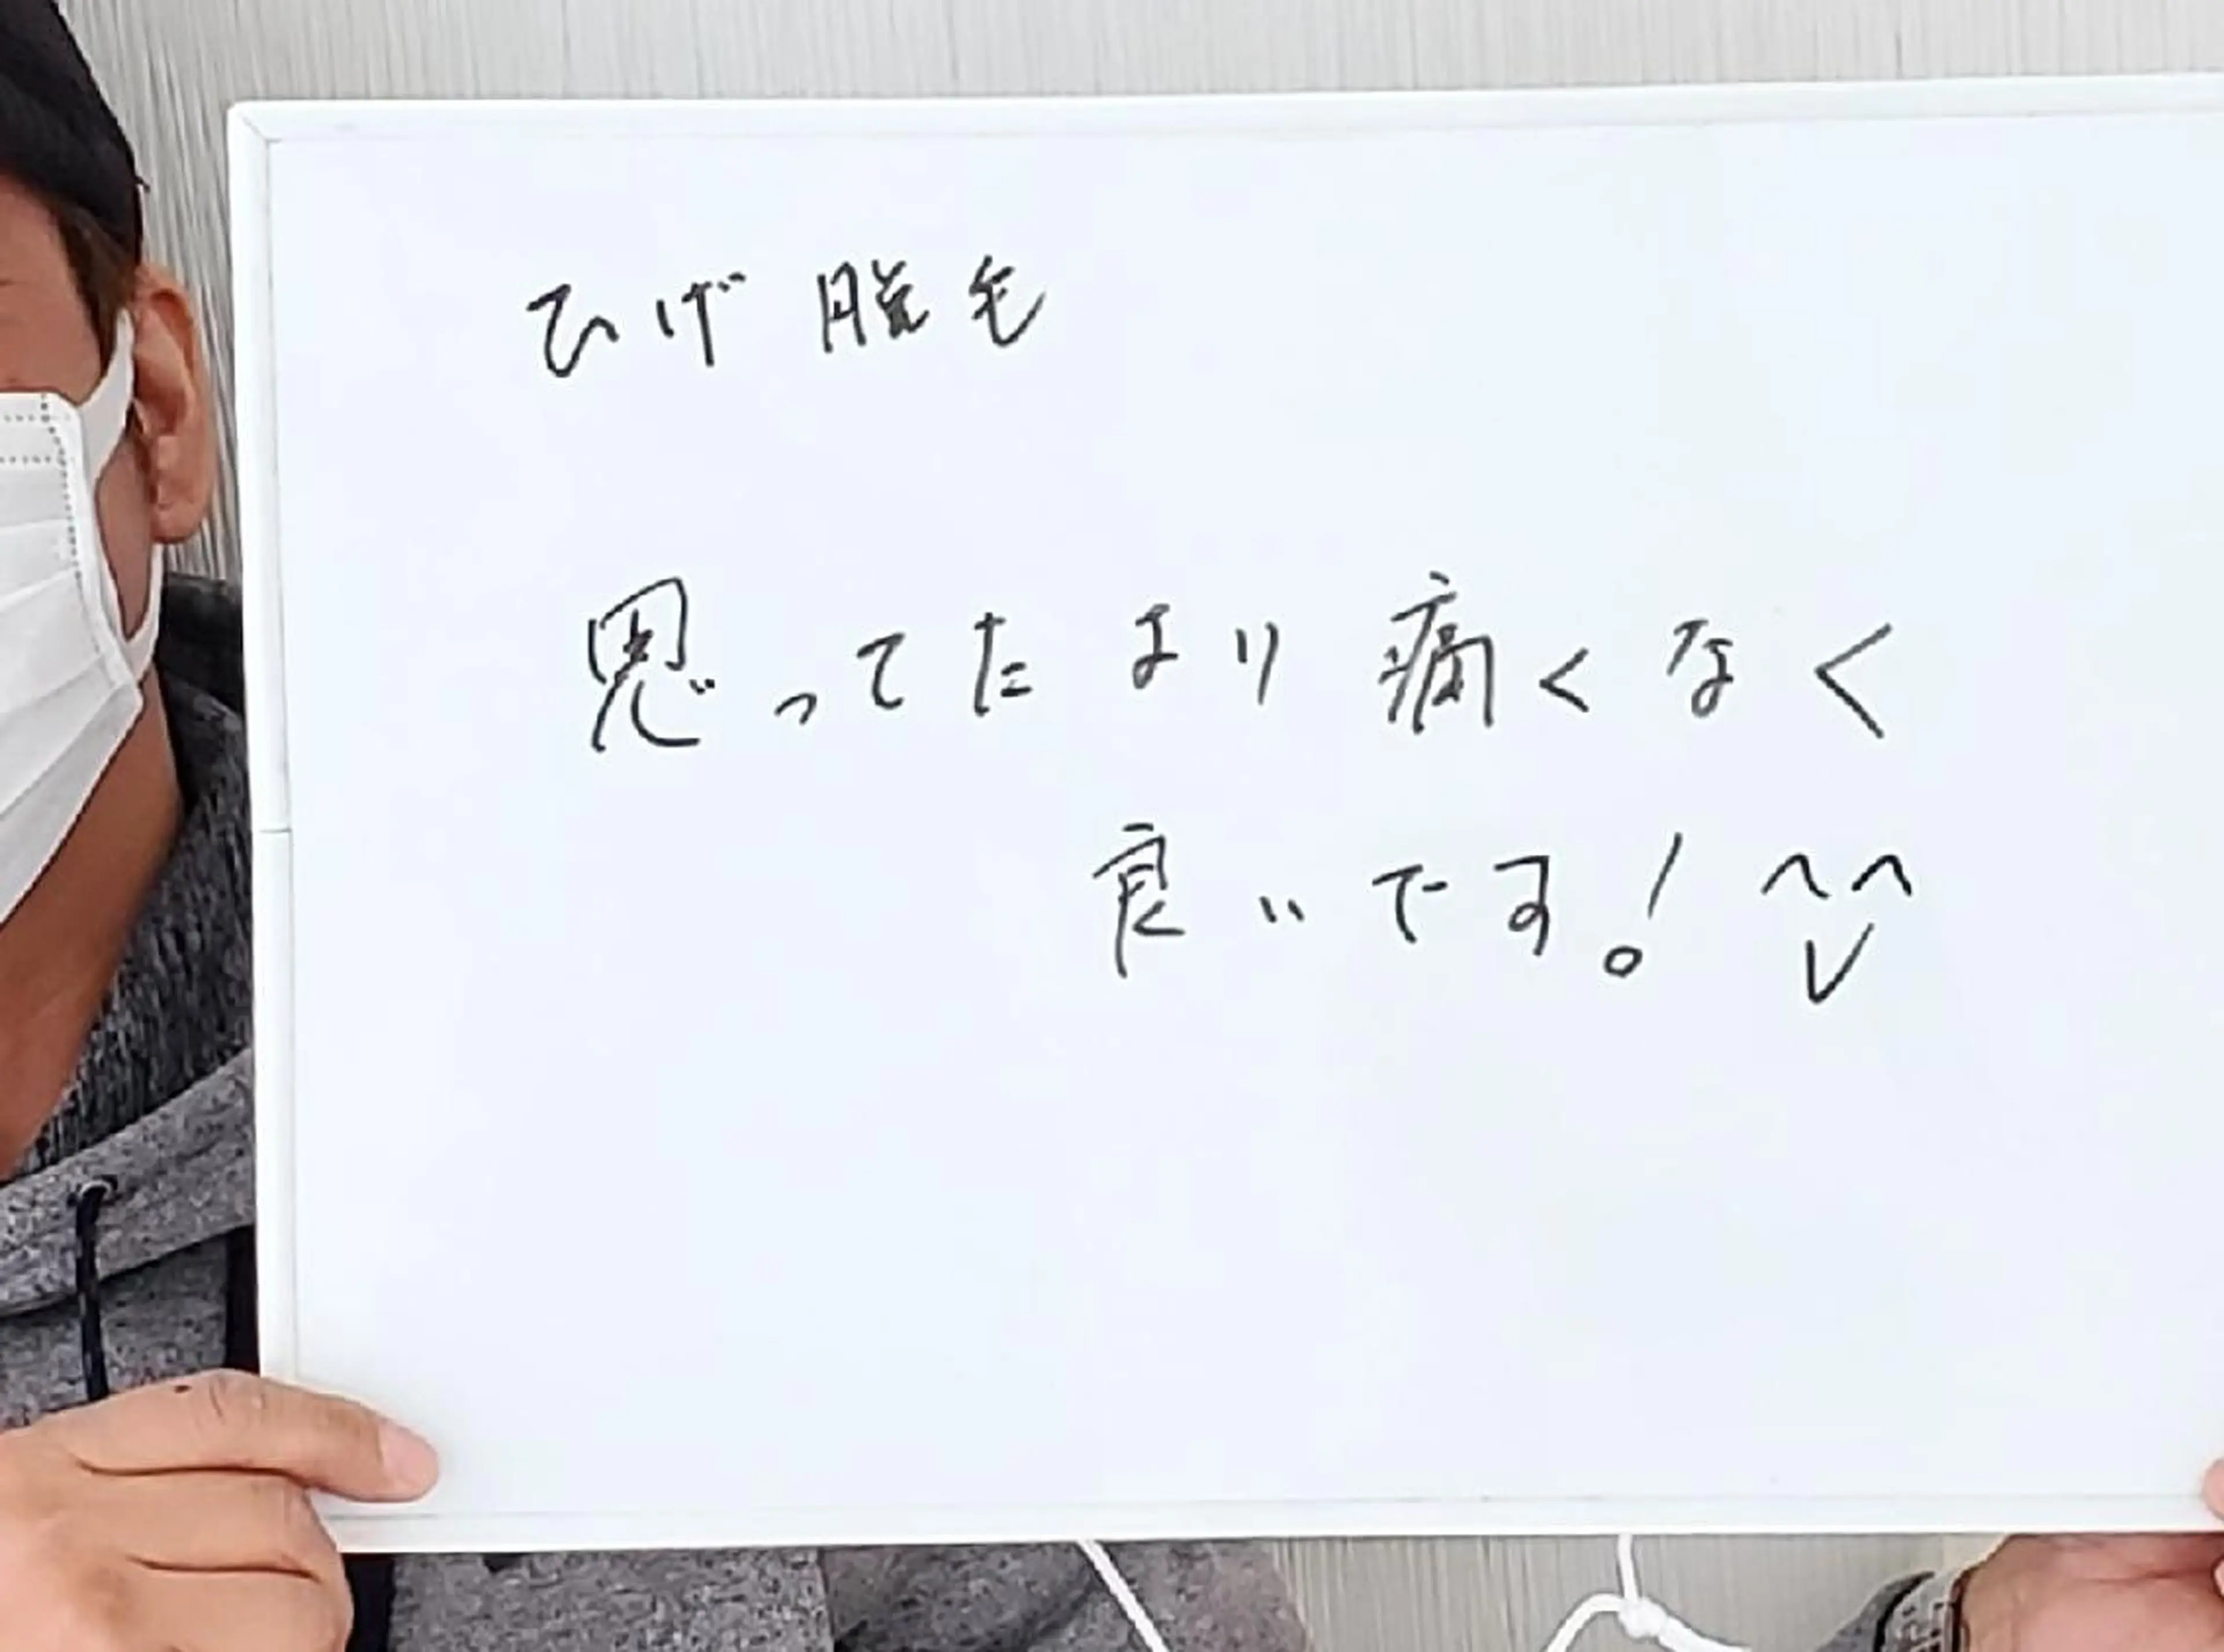 ひげ脱毛
思ってたより痛くなく
良いです! ^^